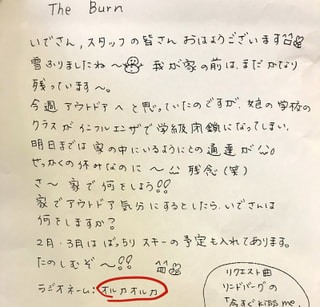 The Burn
いでさん,スタッフの皆さん おはようございます
雪ふりましたね〜 我が家の前は、まだかなり
残っています〜。
今週 アウトドアへと思っていたのですが、娘の学校の
クラスが インフルエンザで学級閉鎖になってしまい、
明日までは家の中にいるようにとの通達が
せっかくの休みなのに〜 残念(笑)
さ〜 家で何をしよう!!
家でアウトドア気分にするとしたら、いでさんは
何をしますか?
2月・3月はばっちりスキーの予定も入れてあります。
たのしむぞ〜!!
ラジオネーム:オルカオルカ
リクエスト曲
リンドバーグの
「今すぐ Kiss me